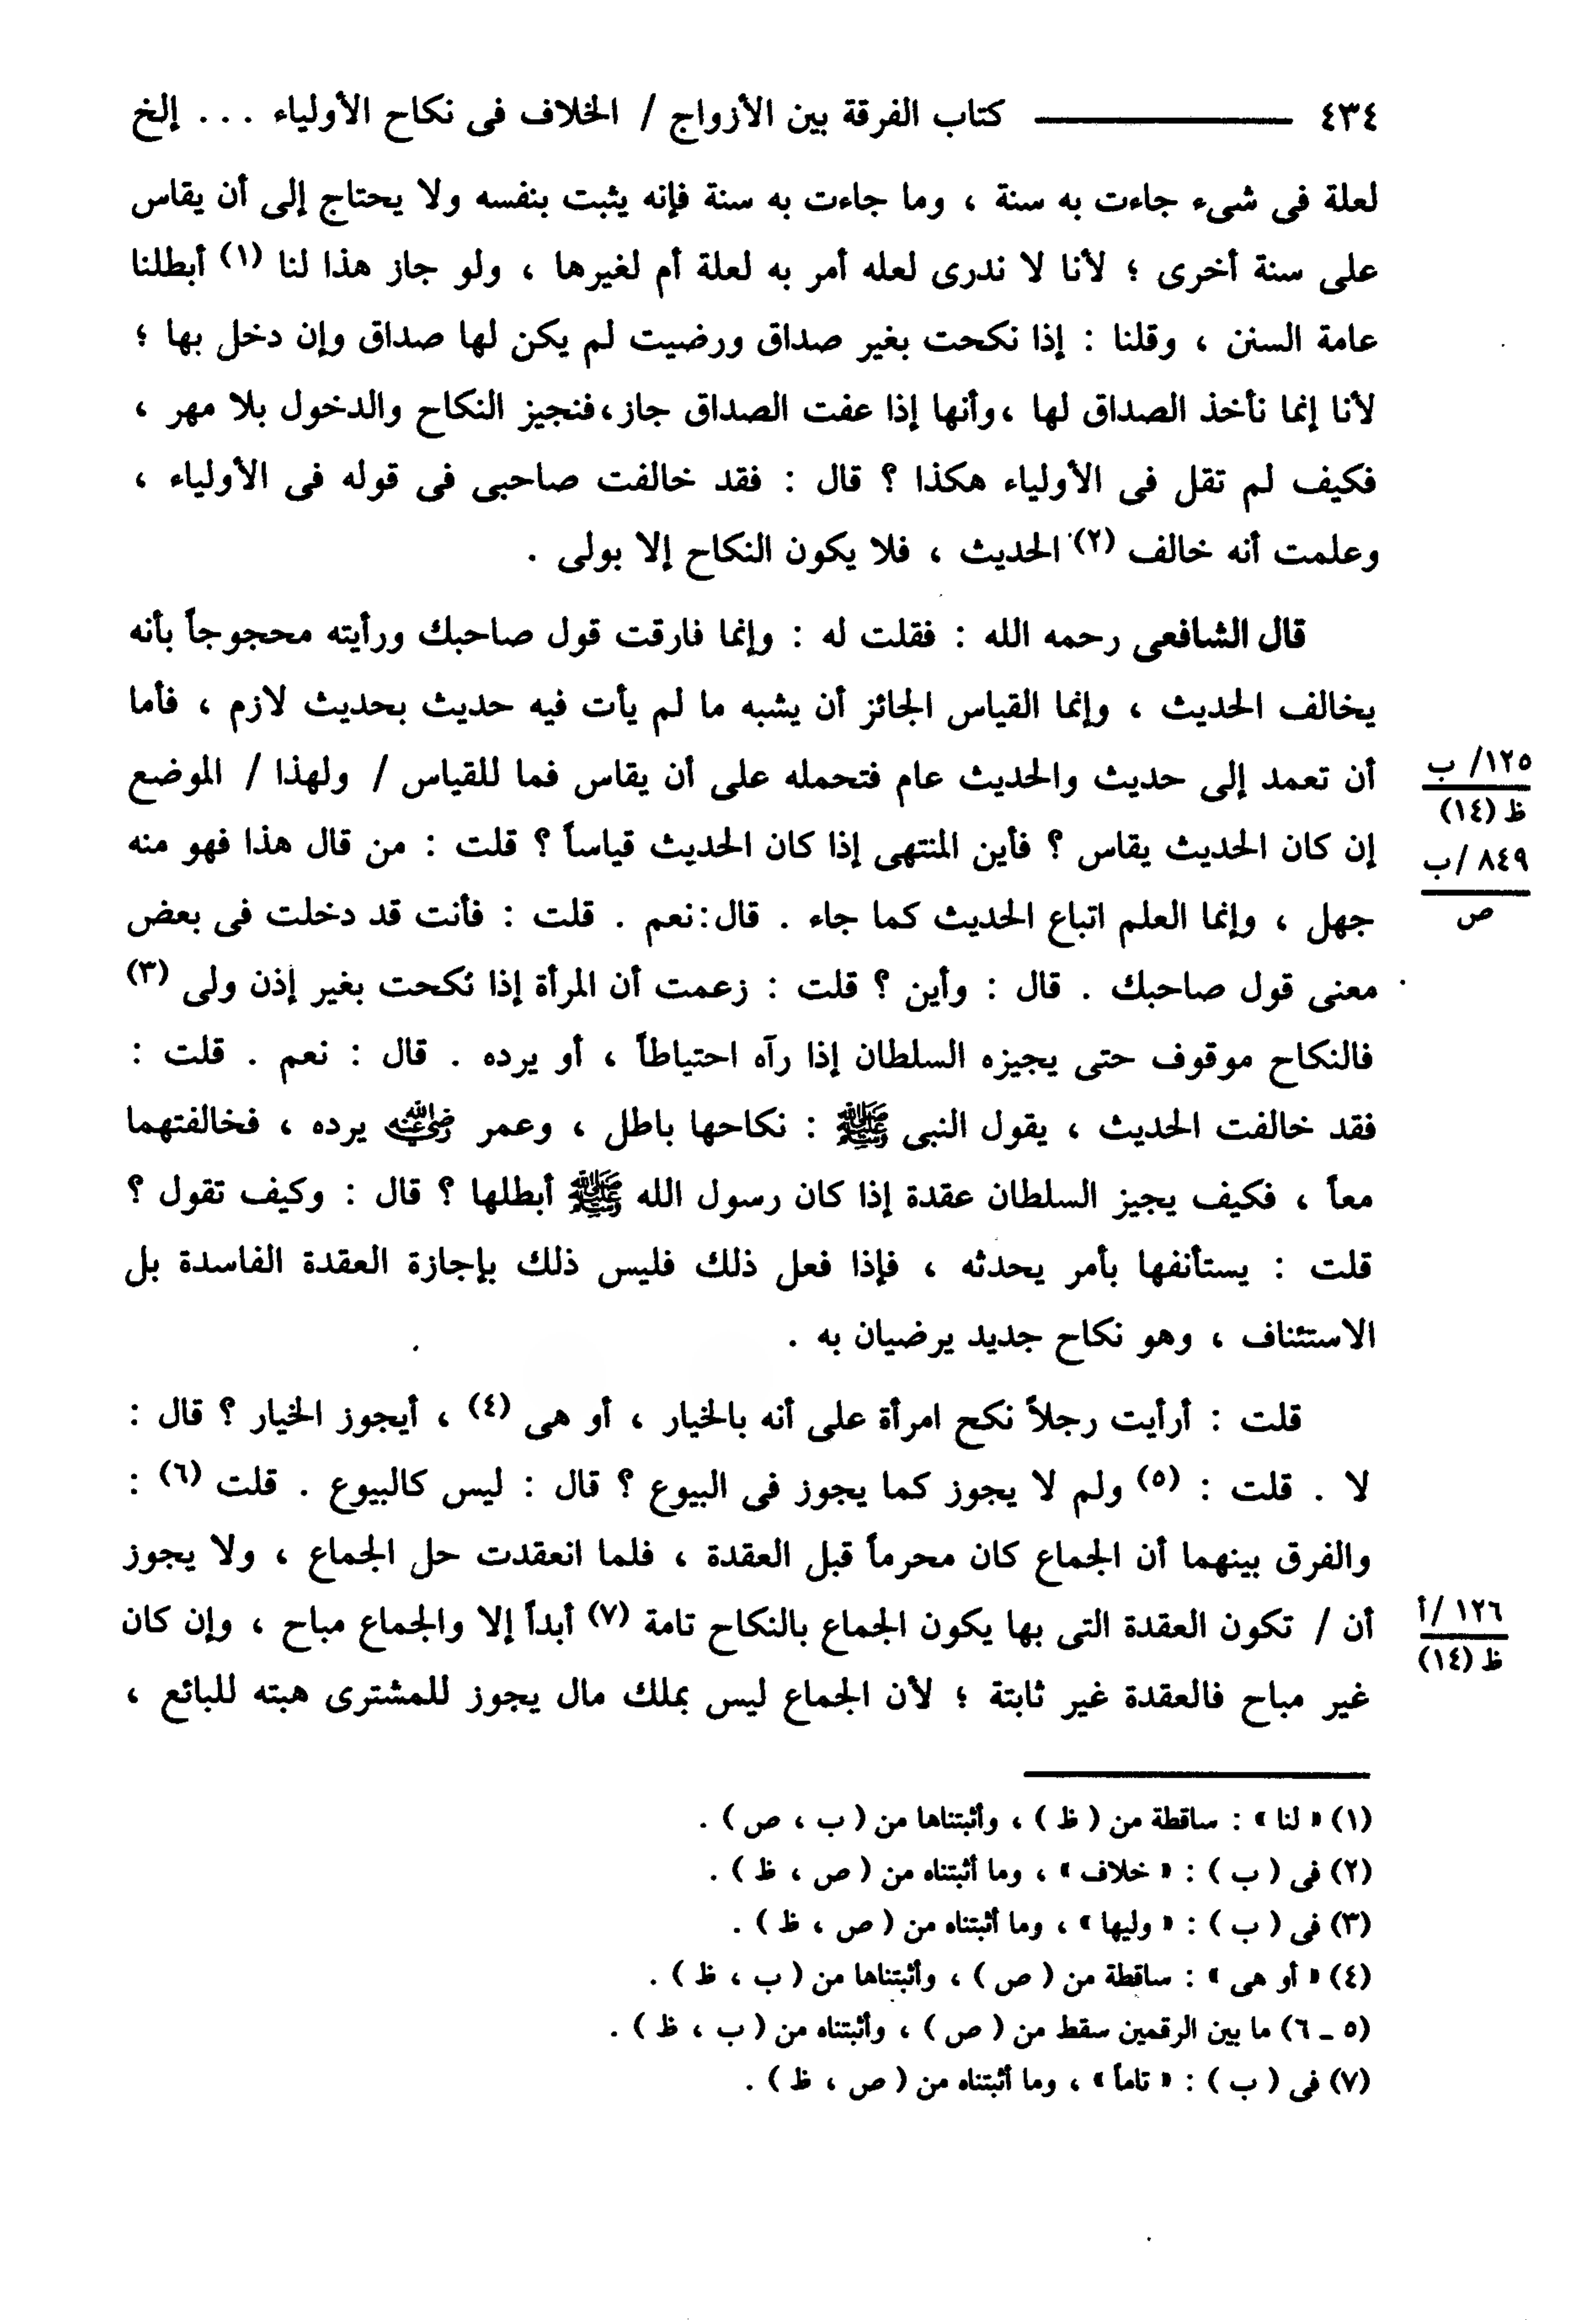 ٤٣٤ ــــــــــــ كتاب الفرقة بين الأزواج / الخلاف فى نكاح الأولياء . . . إلخ
لعلة فى شىء جاءت به سنة ، وما جاءت به سنة فإنه يثبت بنفسه ولا يحتاج إلى أن يقاس
على سنة أخرى ؛ لأنا لا ندرى لعله أمر به لعلة أم لغيرها ، ولو جاز هذا لنا (١) أبطلنا
عامة السنن ، وقلنا : إذا نكحت بغير صداق ورضيت لم يكن لها صداق وإن دخل بها ؛
لأنا إنما نأخذ الصداق لها ،وأنها إذا عفت الصداق جاز،فنجيز النكاح والدخول بلا مهر ،
فكيف لم تقل فى الأولياء هكذا ؟ قال : فقد خالفت صاحبى فى قوله فى الأولياء ،
وعلمت أنه خالف (٢) الحديث ، فلا يكون النكاح إلا بولى .
قال الشافعى رحمه الله : فقلت له : وإنما فارقت قول صاحبك ورأيته محجوجاً بأنه
يخالف الحديث ، وإنما القياس الجائز أن يشبه ما لم يأت فيه حديث بحديث لازم ، فأما
أن تعمد إلى حديث والحديث عام فتحمله على أن يقاس فما للقياس / ولهذا / الموضع
١٢٥/ ب
ظ (١٤)
إن كان الحديث يقاس ؟ فأين المنتهى إذا كان الحديث قياساً ؟ قلت : من قال هذا فهو منه
٨٤٩ /ب
ص
جهل ، وإنما العلم اتباع الحديث كما جاء . قال:نعم . قلت : فأنت قد دخلت فى بعض
معنى قول صاحبك . قال : وأين ؟ قلت : زعمت أن المرأة إذا نُكحت بغير إذن ولى (٣)
فالنكاح موقوف حتى يجيزه السلطان إذا رآه احتياطاً ، أو يرده . قال : نعم . قلت :
فقد خالفت الحديث ، يقول النبى ﷺ : نكاحها باطل ، وعمر رضي الله عنه يرده ، فخالفتهما
معاً ، فكيف يجيز السلطان عقدة إذا كان رسول الله ﷺ أبطلها ؟ قال : وكيف تقول ؟
قلت : يستأنفها بأمر يحدثه ، فإذا فعل ذلك فليس ذلك بإجازة العقدة الفاسدة بل
الاستئناف ، وهو نكاح جديد يرضيان به .
قلت : أرأيت رجلاً نكح امرأة على أنه بالخيار ، أو هى (٤) ، أيجوز الخيار ؟ قال :
لا . قلت : (٥) ولم لا يجوز كما يجوز فى البيوع ؟ قال : ليس كالبيوع . قلت (٦) :
والفرق بينهما أن الجماع كان محرماً قبل العقدة ، فلما انعقدت حل الجماع ، ولا يجوز
أن / تكون العقدة التى بها يكون الجماع بالنكاح تامة (٧) أبداً إلا والجماع مباح ، وإن كان
١٢٦ /أ
ظ (١٤)
غير مباح فالعقدة غير ثابتة ؛ لأن الجماع ليس بملك مال يجوز للمشترى هبته للبائع ،
(١) « لنا » : ساقطة من ( ظ ) ، وأثبتناها من ( ب ، ص ) .
(٢) فى ( ب ) : « خلاف » ، وما أثبتناه من ( ص ، ظ ) .
(٣) فى ( ب ) : « وليها » ، وما أثبتناه من ( ص ، ظ ) .
(٤) « أو هى » : ساقطة من ( ص ) ، وأثبتناها من ( ب ، ظ ) .
(٥ - ٦) ما بين الرقمين سقط من ( ص ) ، وأثبتناه من ( ب ، ظ ) .
(٧) فى ( ب ) : « تاماً » ، وما أثبتناه من ( ص ، ظ ) .